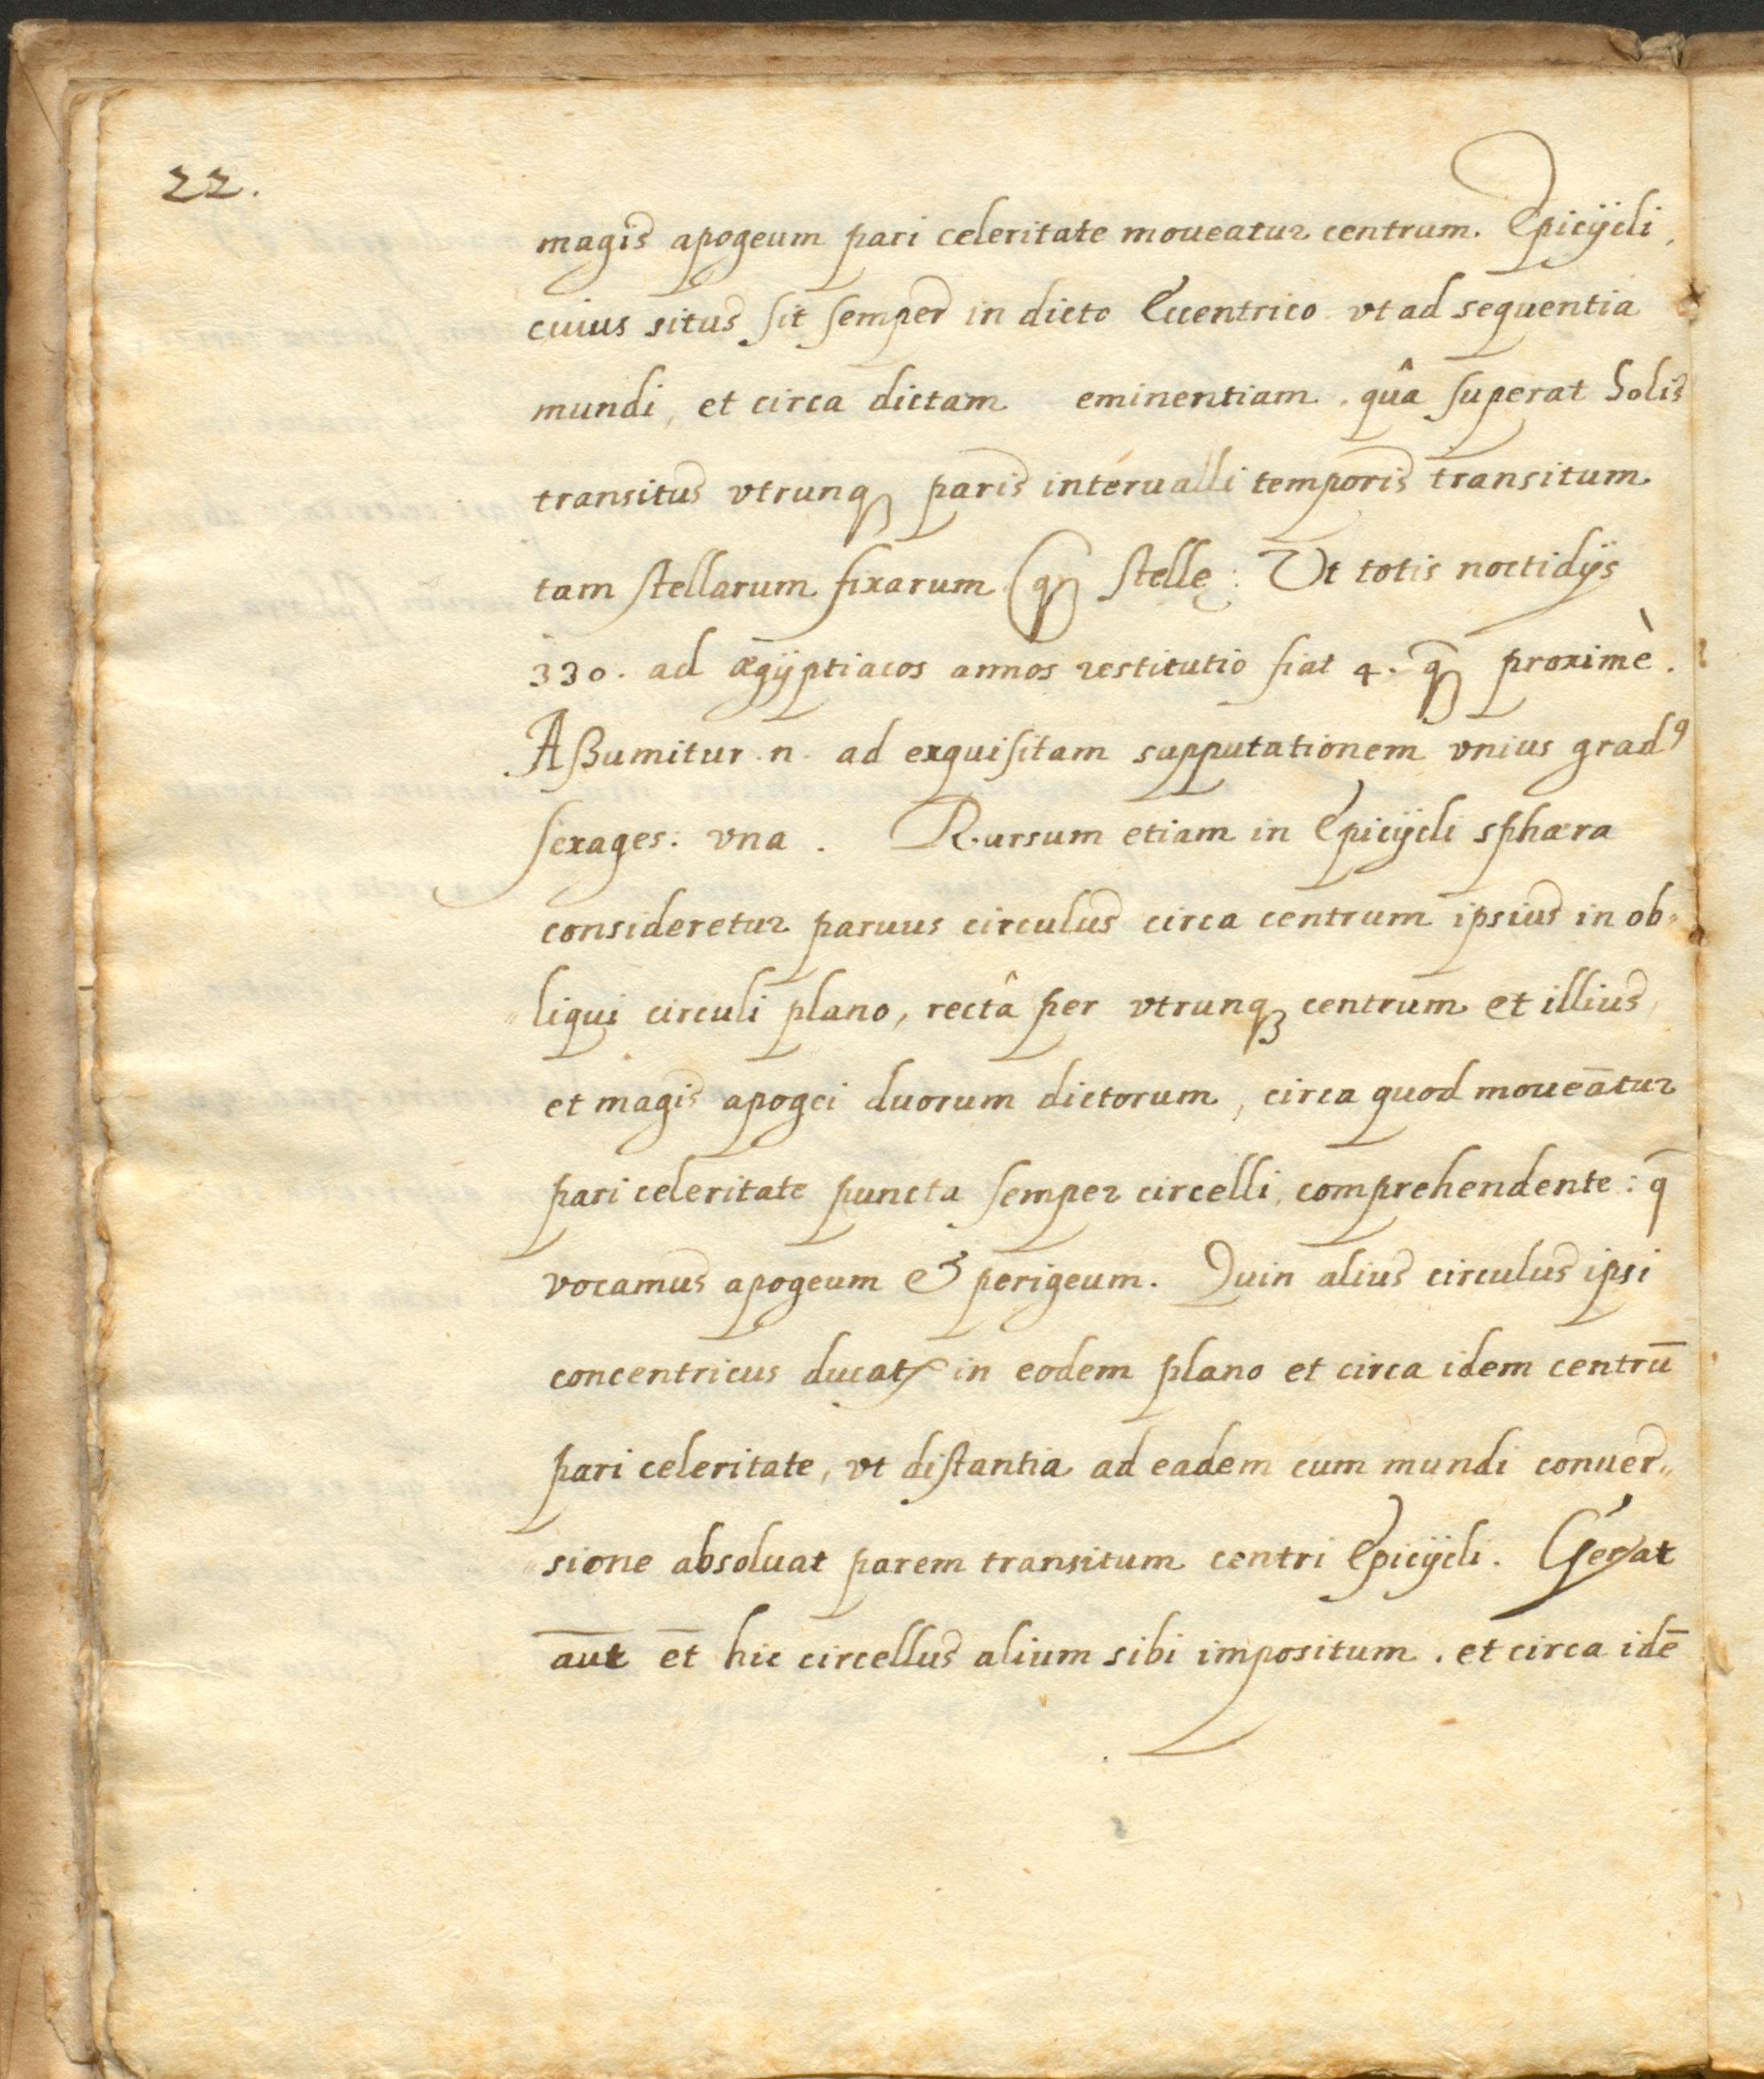 22.
magis apogeum pari celeritate moueatur centrum. Epicÿcli,
cuius situs sit semper in dicto Eccentrico vt ad sequentia
mundi, et circa dictam eminentiam. quâ superat Solis
transitus vtrunqꝫ paris interualli temporis transitum
tam stellarum fixarum (qꝫ stellę: Vt totis noctidÿs
330. ad ægÿptiacos annos restitutio fiat 4. q̄ꝫ proximè.
Aßumitur .n. ad exquisitam supputationem vnius gradꝰ
sexages: vna. Rursum etiam in Epicÿcli sphæra
consideretur paruus circulus circa centrum ipsius in ob=
liqui circuli plano, rectâ per vtrunqꝫ centrum et illius,
et magis apogei duorum dictorum, circa quod moueātur
pari celeritate puncta semper circelli, comprehendente: q̄
vocamus apogeum & perigeum. Quin alius circulus ipsi
concentricus ducat᷑ in eodem plano et circa idem centrū
pari celeritate, vt distantia ad eadem cum mundi conuer„
sione absoluat parem transitum centri Epicÿcli. Gerat
aūt et̄ hic circellus alium sibi impositum. et circa idē